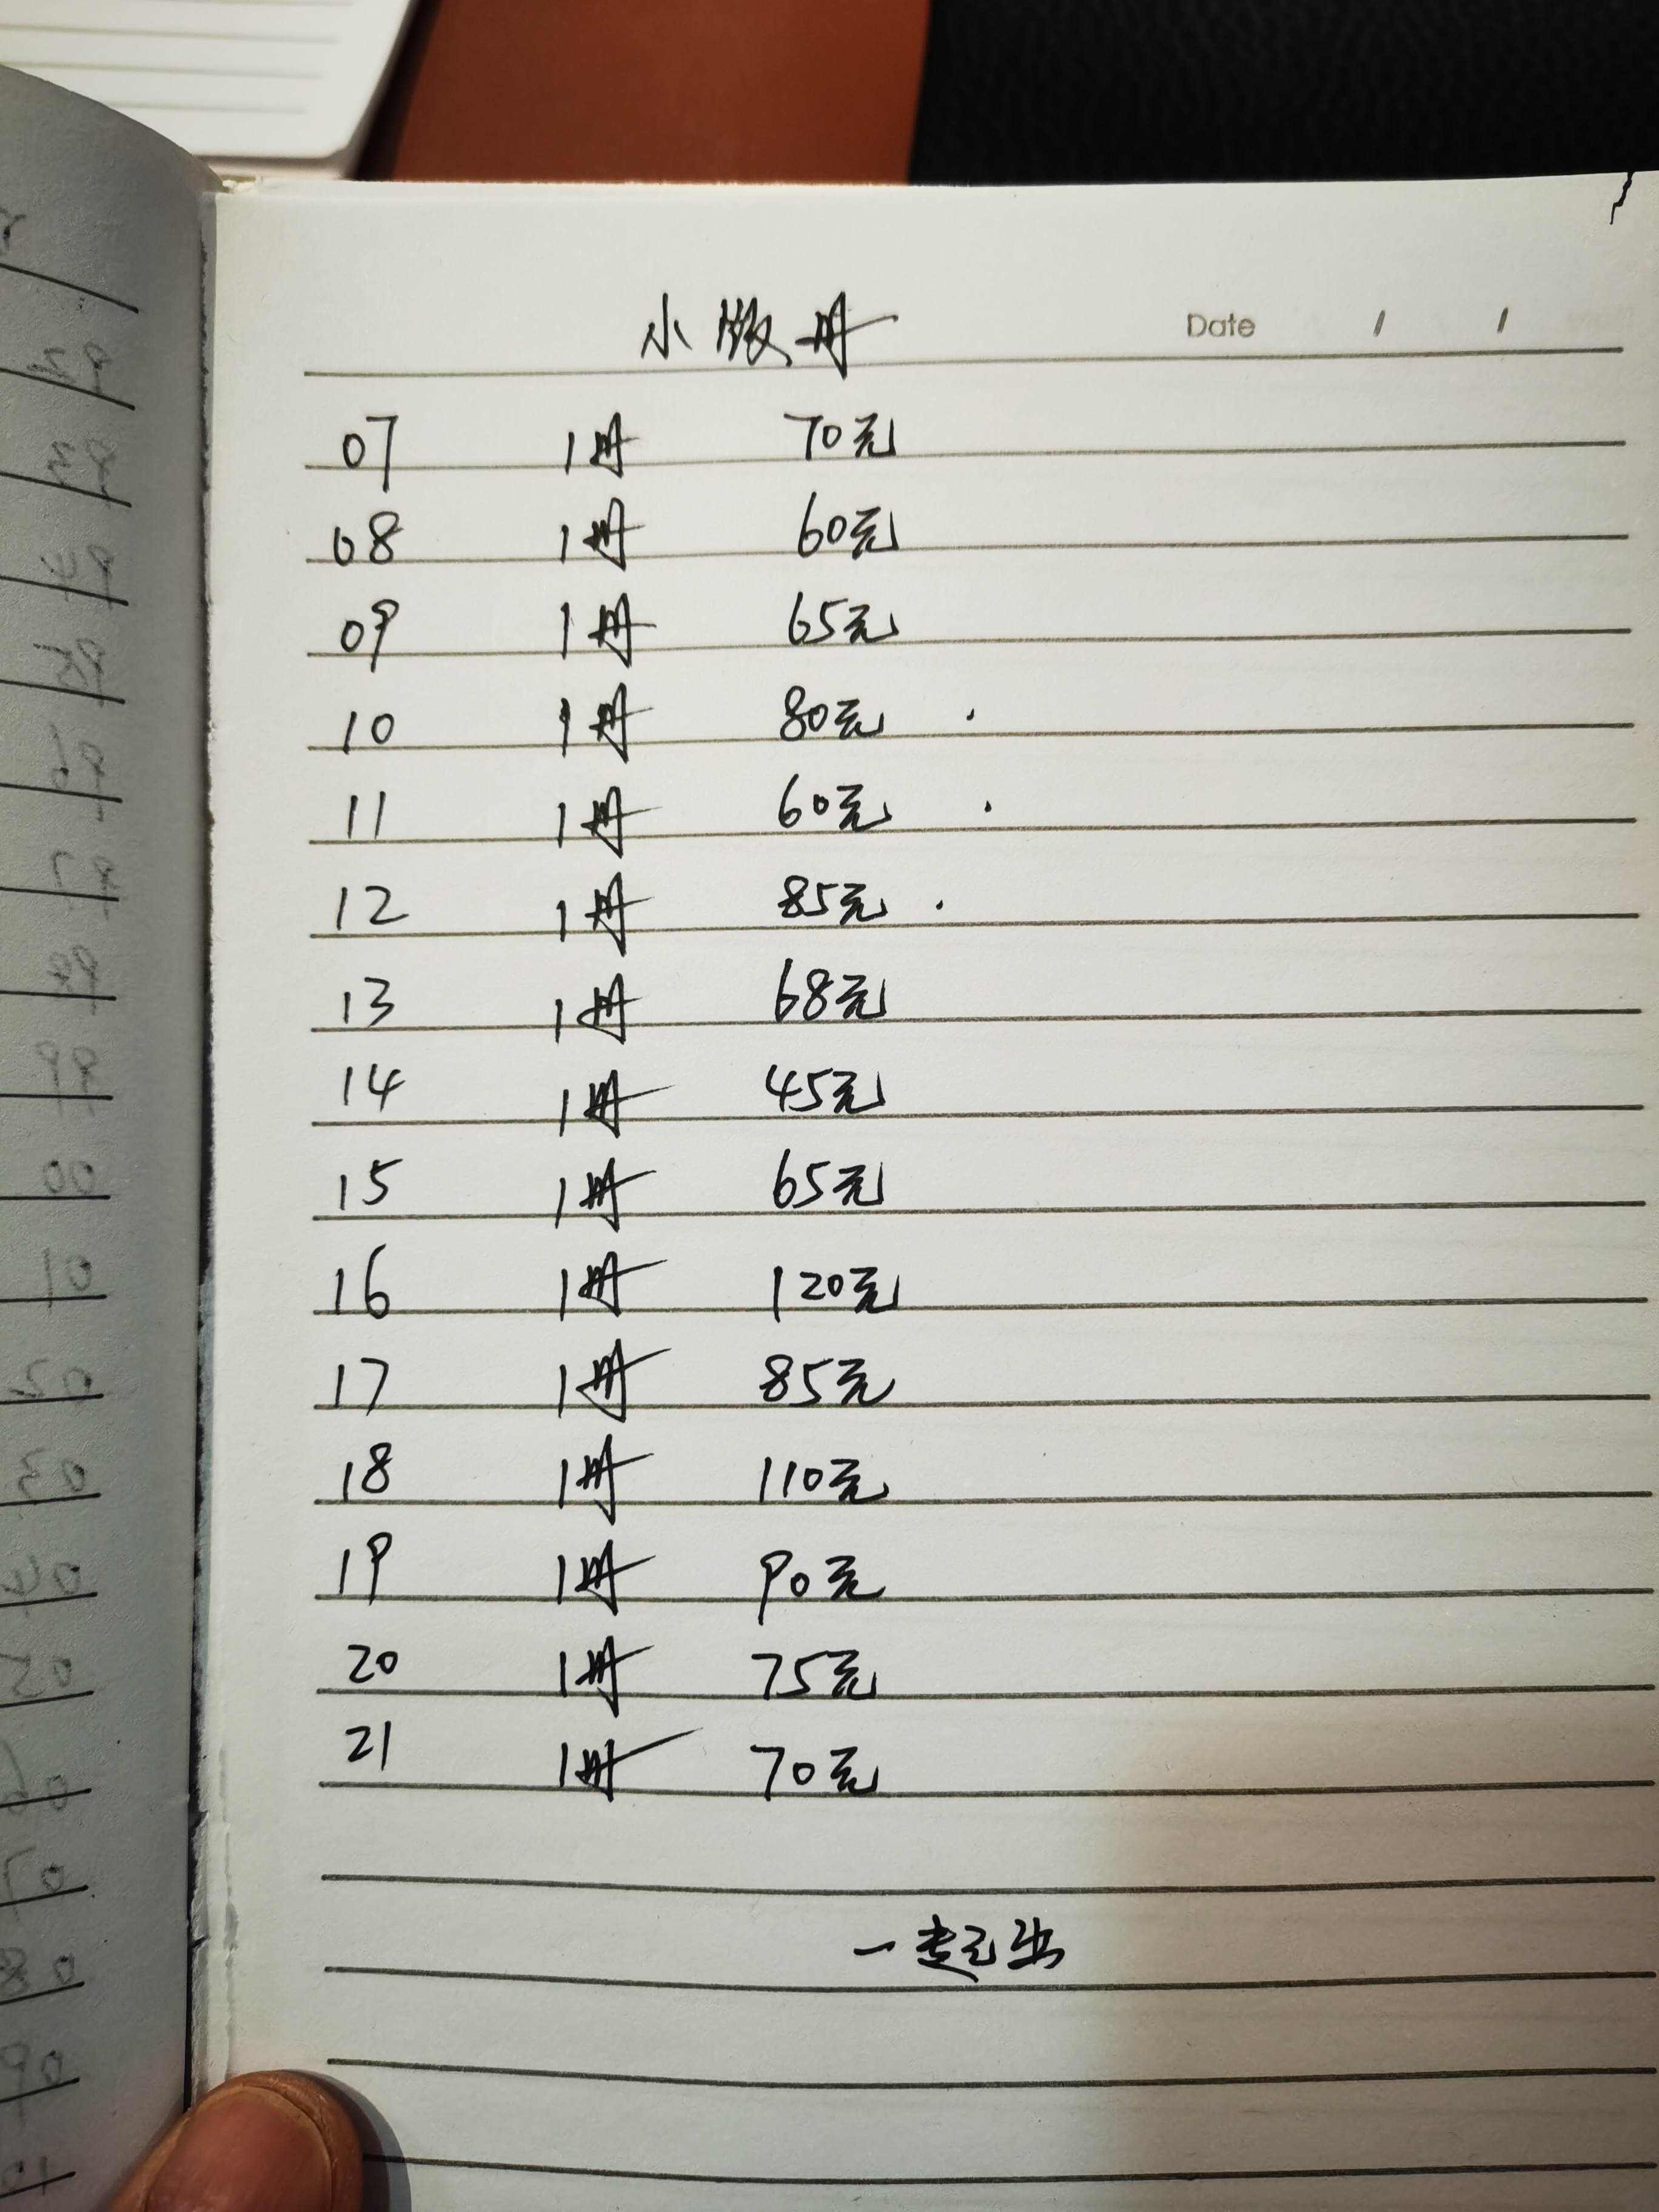 小版册
Date / /
07 1册 70元
08 1册 60元
09 1册 65元
10 1册 80元
11 1册 60元
12 1册 85元
13 1册 68元
14 1册 45元
15 1册 65元
16 1册 120元
17 1册 85元
18 1册 110元
19 1册 90元
20 1册 75元
21 1册 70元
一起出